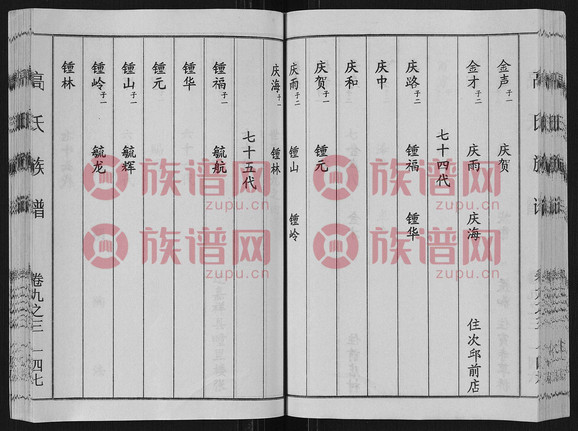 金声子一 庆贺
金才子二 庆雨 庆海 住次邱前店
七十四代
庆路子二 锺福 锺华
庆中
庆和
庆贺子一 锺元
庆雨子二 锺山 锺岭
庆海子一 锺林
七十五代
锺福子一 毓航
锺华
锺元
锺山子一 毓辉
锺岭子一 毓龙
锺林
高氏族谱 卷九之三 一四七
族谱网
zupu.cn
族谱网
zupu.cn
族谱网
zupu.cn
族谱网
zupu.cn